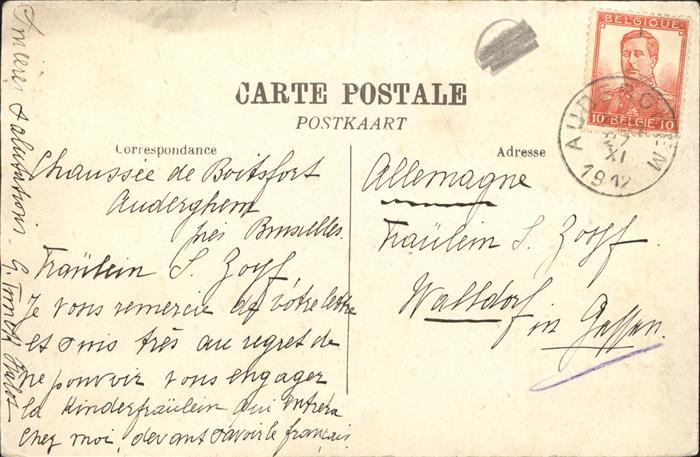 BELGIQUE
10 BELGIE 10
AUDERGHEM
27
XI
1912
CARTE POSTALE
POSTKAART
Correspondance
Adresse
Chaussée de Boitsfort
Auderghem
près Bruxelles.
Fräulein S. Zopf,
Je vous remercie de vôtre lettre
et suis très au regret de
ne pouvoir vous engager
la Kinderfräulein qui entrera
chez moi, devant savoir le français.
Sincères salutations - G.
Allemagne
Fräulein S. Zopf.
Walldorf
in Gessen.